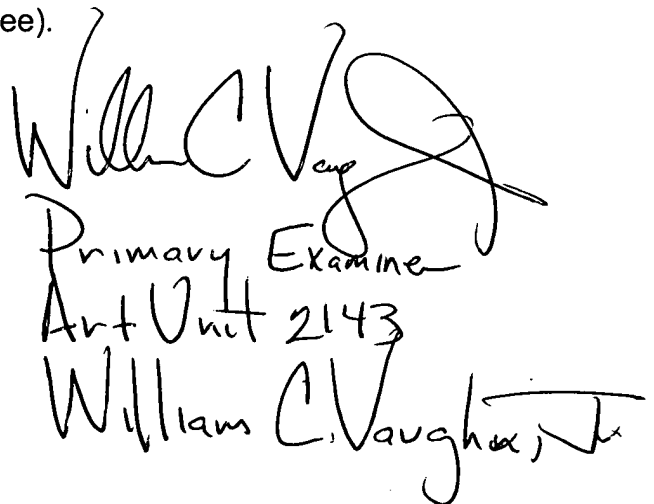 ee).
William C Vaug
Primary Examiner
Art Unit 2143
William C. Vaughn, Jr.